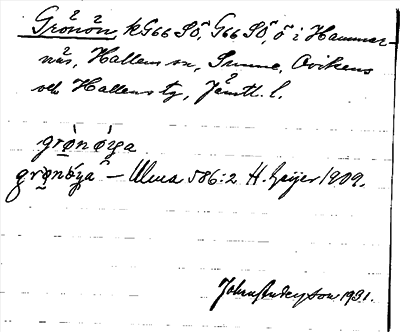 Grönön k G66 SÖ, G66 SÖ, ö i Hammar-
näs, Hallens sn, Sunne, Ovikens
och Hallens tg, Jämtl. l.
grønø̀ya
grønø̀ya – Ulma 586:2 H. Geijer 1909.
John Andersson 1931.